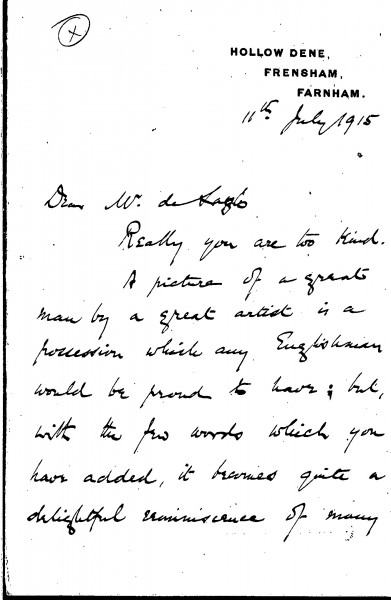 X
HOLLOW DENE,
FRENSHAM,
FARNHAM.
11th July 1915
Dear Mr. de Laszlo
Really you are too kind.
A picture of a great
man by a great artist is a
possession which any Englishman
would be proud to have; but,
with the few words which you
have added, it becomes quite a
delightful reminiscence of many